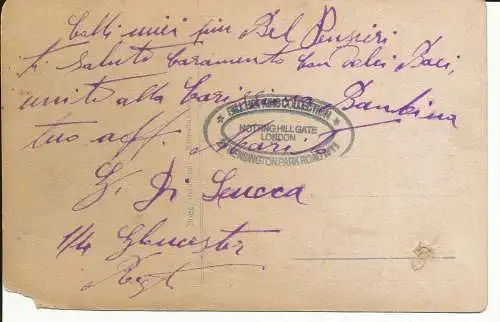 miei più Bei Pensieri
ti saluto Caramente Con dolci Baci,
unito alla Bambina
tuo aff. Marito
G. Di Lucca
1/4 Gloucester
Regt
COLLECTION
NOTTING HILL GATE
LONDON
KENSINGTON PARK ROAD W11